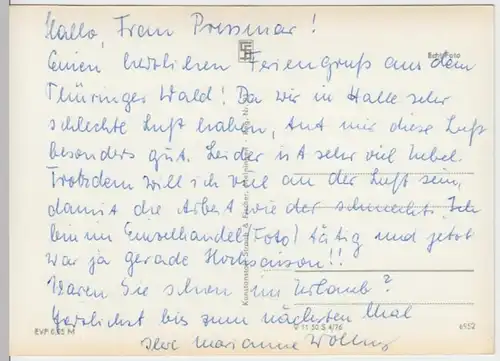 Hallo, Frau Pressmar!
Echt Foto
Einen herzlichen Feriengruß aus dem
Thüringer Wald! Da wir in Halle sehr
schlechte Luft haben, tut mir diese Luft
besonders gut. Leider ist sehr viel Nebel.
Trotzdem will ich viel an der Luft sein,
damit die Arbeit wieder schmeckt. Ich
bin im Einzelhandel (Foto) tätig und jetzt
war ja gerade Hochsaison!!
Waren Sie schon im Urlaub?
Herzlichst bis zum nächsten Mal
Ihre Marianne
Kunstanstalt Straub & Fischer, Meiningen
EVP 0,25 M
V 11 50 S 4/76
6952